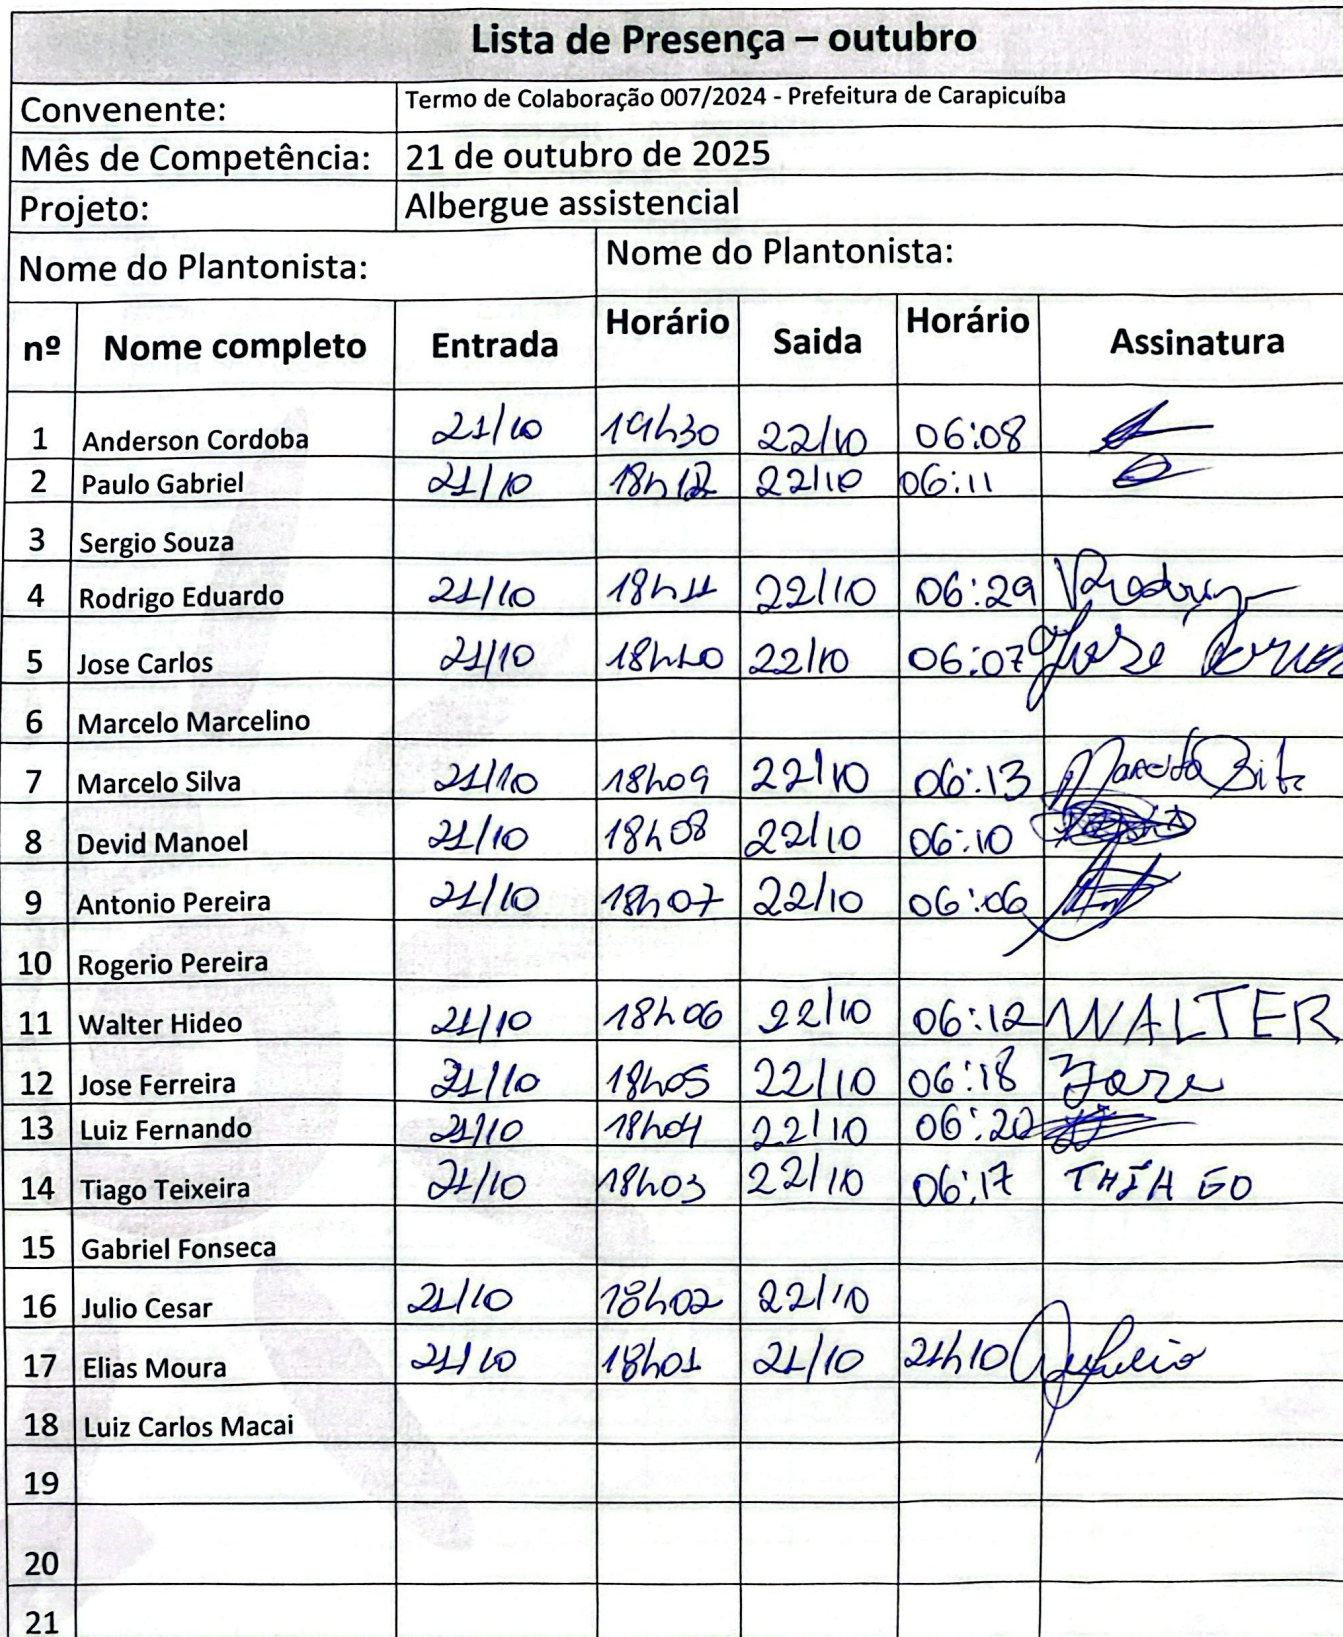 Lista de Presença – outubro
Convenente: Termo de Colaboração 007/2024 - Prefeitura de Carapicuíba
Mês de Competência: 21 de outubro de 2025
Projeto: Albergue assistencial
Nome do Plantonista: Nome do Plantonista:
nº Nome completo Entrada Horário Saida Horário Assinatura
1 Anderson Cordoba 21/10 19h30 22/10 06:08
2 Paulo Gabriel 21/10 18h12 22/10 06:11
3 Sergio Souza
4 Rodrigo Eduardo 21/10 18h11 22/10 06:29 Rodrigo
5 Jose Carlos 21/10 18h10 22/10 06:07 José
6 Marcelo Marcelino
7 Marcelo Silva 21/10 18h09 22/10 06:13 Marcelo
8 Devid Manoel 21/10 18h08 22/10 06:10
9 Antonio Pereira 21/10 18h07 22/10 06:06
10 Rogerio Pereira
11 Walter Hideo 21/10 18h06 22/10 06:12 WALTER
12 Jose Ferreira 21/10 18h05 22/10 06:18 Joze
13 Luiz Fernando 21/10 18h04 22/10 06:20
14 Tiago Teixeira 21/10 18h03 22/10 06:17 THIAGO
15 Gabriel Fonseca
16 Julio Cesar 21/10 18h02 22/10
17 Elias Moura 21/10 18h01 21/10 21h10
18 Luiz Carlos Macai
19
20
21